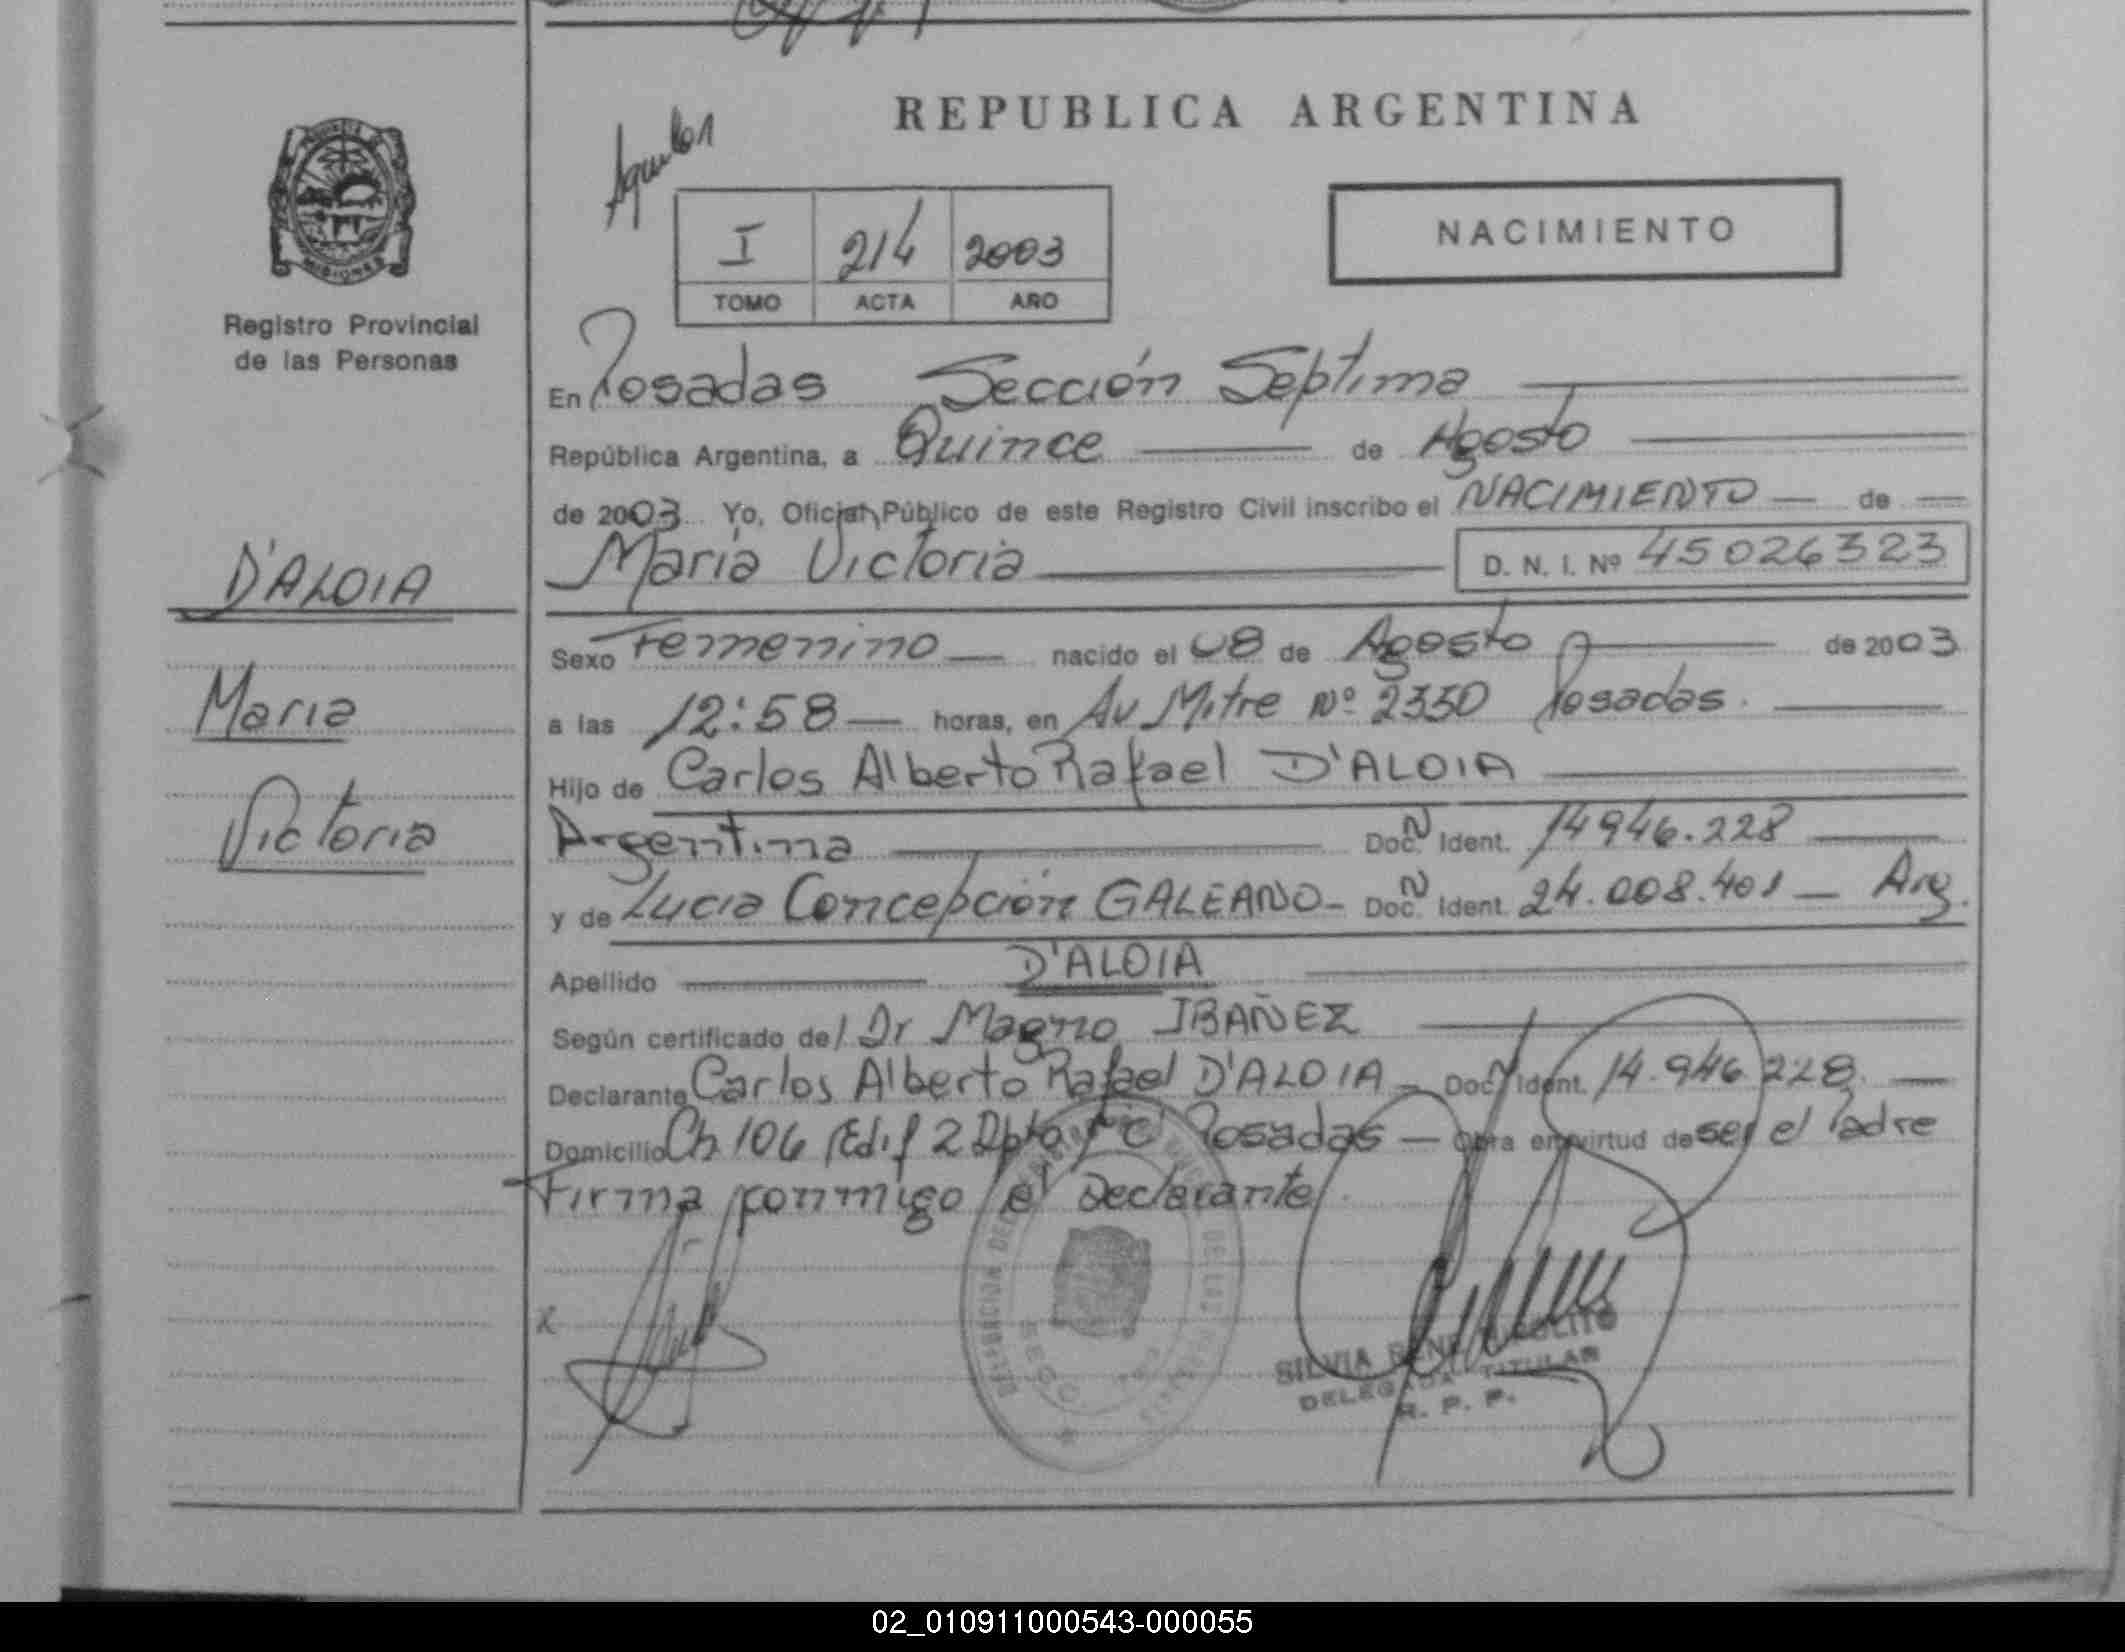 REPUBLICA ARGENTINA
MISIONES
Registro Provincial
de las Personas
I 214 2003
TOMO ACTA AÑO
NACIMIENTO
En Posadas Sección Septima
República Argentina, a Quince de Agosto
de 2003 Yo, Oficial Público de este Registro Civil inscribo el NACIMIENTO de
María Victoria D. N. I. Nº 45026323
D'ALOIA
Maria
Victoria
Sexo Femenino nacido el 08 de Agosto de 2003
a las 12:58 horas, en Av Mitre Nº 2350 Posadas.
Hijo de Carlos Alberto Rafael D'ALOIA
Argentina Doc. N Ident. 14946.228
y de Lucia Concepción GALEANO - Doc. N Ident. 24.008.401 - Arg.
Apellido D'ALOIA
Según certificado del Dr Magno IBAÑEZ
Declarante Carlos Alberto Rafael D'ALOIA - Doc. N Ident. 14.946.228.
Domicilio Ch 106 Edif 2 Dpto "C" Posadas - Obra en virtud de ser el Padre
Firma conmigo el Declarante.
X
SILVIA RENE
DELEGADA TITULAR
R. P. P.
02_010911000543-000055